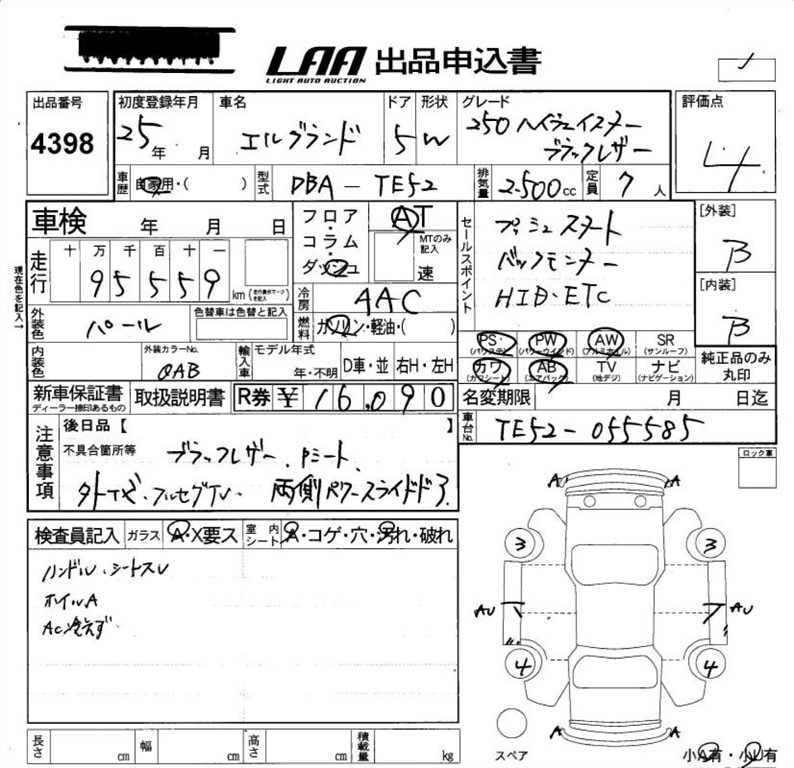 LAA 出品申込書
LIGHT AUTO AUCTION
出品番号 初度登録年月 車名 ドア 形状 グレード 評価点
4398 25年 月 エルグランド 5 W 250 ハイウェイスター
ブラックレザー
4
車歴 自家用・( ) 型式 DBA-TE52 排気量 2.500cc 定員 7人
車検 年 月 日 フロア・コラム・ダッシュ AT セールスポイント プッシュスタート [外装]
B
MTのみ記入 速 バックモニター
走行 十 万 千 百 十 一
95559 km (走行表示マークを記入) HID・ETC [内装]
B
現在色を記入→
冷房 AAC
外装色 パール 色替車は色替と記入 燃料 ガソリン・軽油・( )
PS (パワステ) PW (パワーウインド) AW (アルミホイル) SR (サンルーフ) 純正品のみ丸印
内装色 外装カラーNo. QAB 輸入車 モデル年式 年・不明 D車・並 右H・左H
カワ (カワシート) AB (エアバック) TV (地デジ) ナビ (ナビゲーション)
新車保証書 取扱説明書 R券 ¥ 16.090 名変期限 月 日迄
ディーラー捺印あるもの
車台No. TE52-055585
注意事項 後日品【 】
不具合箇所等 ブラックレザー、Pシート、
外TV・フルセグTV、両側パワースライドドア
ロック車
検査員記入 ガラス A・X要ス 室内シート A・コゲ・穴・汚れ・破れ
ハンドル、シートスレ
ホイルA
AC冷えず
A A
3 3
AU AU
4 4
A A
スペア 小A有・小U有
長さ cm 幅 cm 高さ cm 積載量 kg